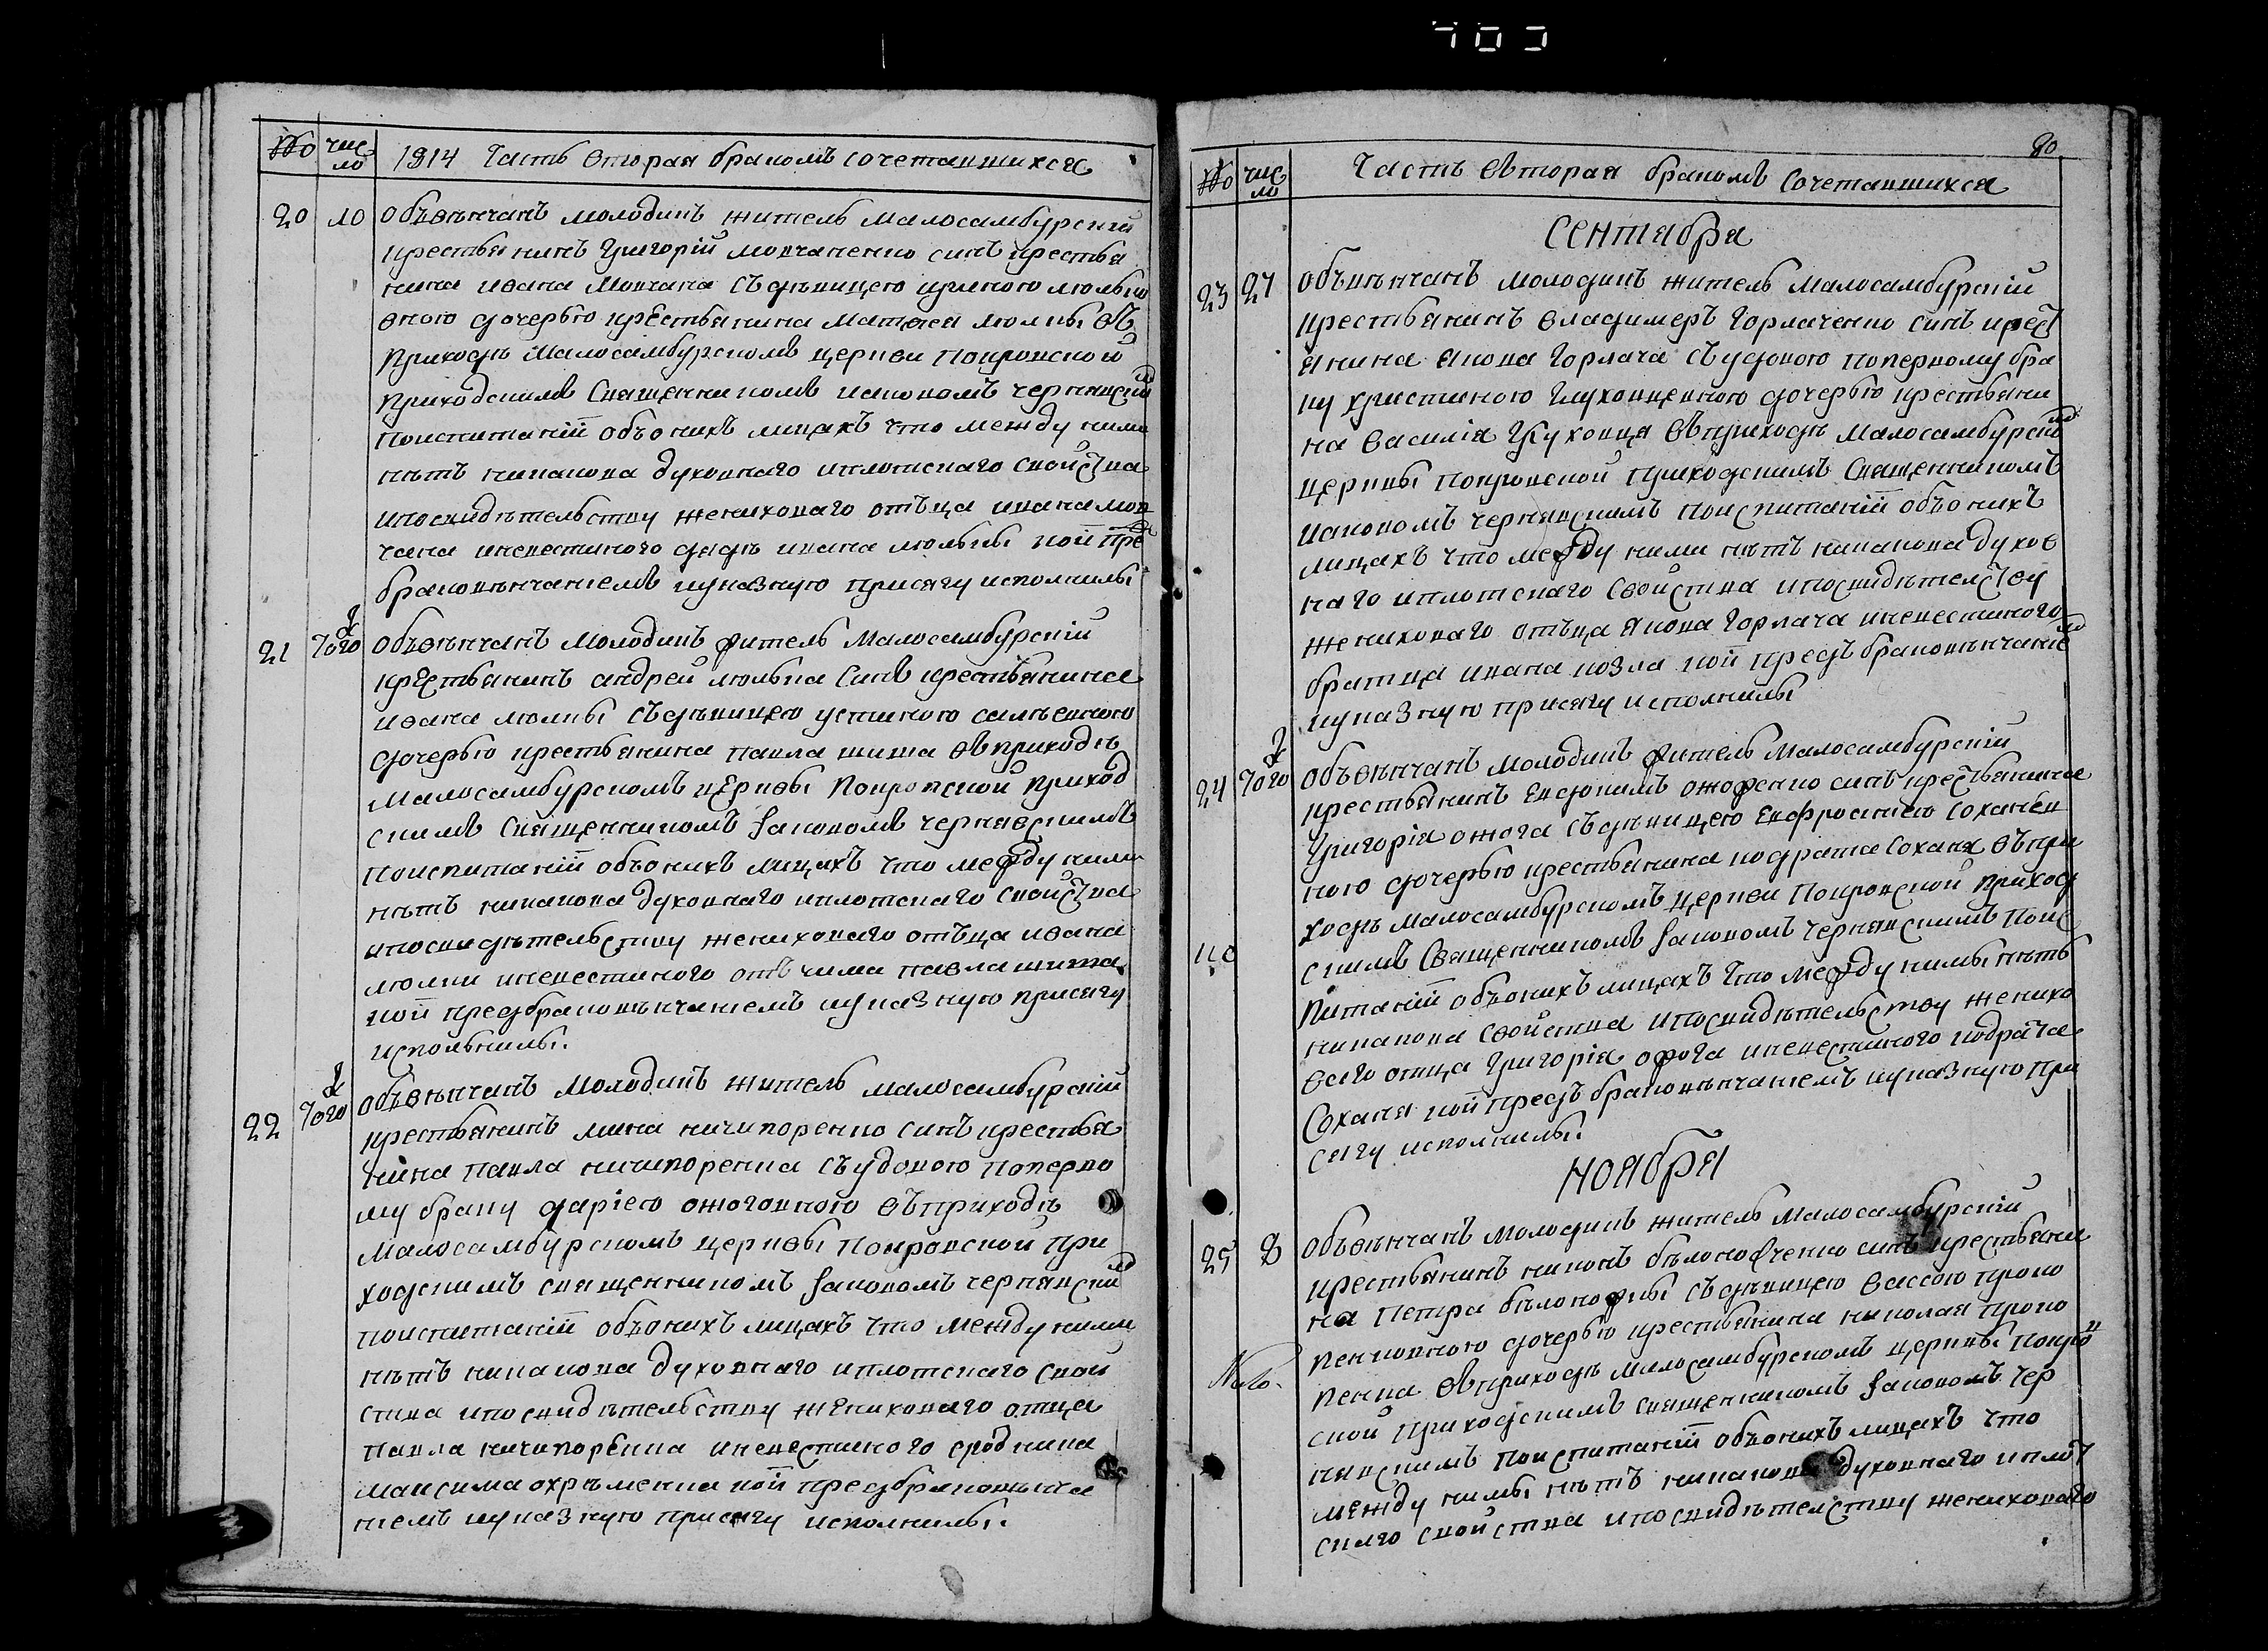 № чис
ло
1814 Часть вторая бракомъ сочетавшихся
20 10 Объвѣнчанъ молодикъ житель малосамбурскій
крестьянинъ григорій мовчаненко синъ крестья
нина ивана мовчана съ дѣвицею
вною дочерью крестьянина матфея люлкы въ
приходѣ малосамбурскомъ церкви покровской
приходскимъ священникомъ иаковомъ чернявскимъ
поиспитаніи объоныхъ лицахъ что между ними
нѣтъ никакова духовнаго иплотскаго свойства
ипосвидѣтельству жениховаго отъца ивана мов
чана иневестиного дядѣ ивана люлькы кои пред
браковѣнчаніемъ куказную присягу исполнилы
21 того Объвѣнчанъ молодикъ житель малосамбурскій
крестьянинъ андрей люлька синъ крестьянина
ивана люлкы съ дѣвицею устиною
дочерью крестьянина павла шиша въ приходѣ
малосамбурскомъ церквы покровской приход
скимъ священникомъ іаковомъ чернявскимъ
поиспитаніи объоныхъ лицахъ что между ними
нѣтъ никакова духовнаго иплотскаго свойства
ипосвидѣтельству жениховаго отъца ивана
люлки иневестиного отъчима павла шиша
кои предбраковѣнчаніемъ куказную присягу
испольнилы.
22 того Объвѣнчанъ молодикъ житель малосамбурскій
крестьянинъ мина ничипоренко синъ крестья
нина павла ничипоренка съ удовою поперво
му браку даріею ожоговною въ приходѣ
малосамбурскомъ церквы покровской при
ходскимъ священникомъ іаковомъ чернявским
поиспитаніи объоныхъ лицахъ что между ними
нѣтъ никакова духовнаго иплотскаго свой
ства ипосвидѣтельству жениховаго отца
павла ничипоренка иневестиного сродника
максима охрѣменка кои предбраковѣнча
ніемъ куказную присягу исполнилы.
80
№ чис
ло
Часть вторая бракомъ сочетавшихся
Сентября
23 27 Объвѣнчанъ молодикъ житель малосамбурскій
крестьянинъ владимеръ горлаченко синъ крест
янина якова горлача съ удовою попервому бра
ку христиною глуховцевною дочерью крестьяни
на василія глуховца въ приходѣ малосамбурском
церквы покровской приходскимъ священникомъ
иаковомъ чернявскимъ поиспитаніи объоныхъ
лицахъ что между ними нѣтъ никакова духов
наго иплотскаго свойства ипосвидѣтелству
жениховаго отъца якова горлача иневестиного
братца ивана козла кои предъ браковѣнчаніем
куказную присягу исполнилы
24 того Объвѣнчанъ молодикъ житель малосамбурскій
крестьянинъ евдокимъ ожоженко синъ крестьянина
григорія ожога съ дѣвицею евфросинею соханев
ною дочерью крестьянина кодрата соханя въ при
ходѣ малосамбурскомъ церкви покровской приход
скимъ священникомъ іаковомъ чернявскимъ поис
питаніи объоныхъ лицахъ что между нимы нѣтъ
никакова свойства ипосвидѣтельству женихо
ваго отца григорія ожога иневестиного кодрата
соханя кои предъ браковѣнчаніемъ куказную при
сягу исполнилы.
Ноября
25 8 Объвѣнчанъ молодикъ житель малосамбурскій
крестьянинъ никонъ бѣлоножченко синъ крестьяни
на петра бѣлоножкы съ дѣвицею вассою проко
пенковною дочерью крестьянина николая проко
пенка въ приходѣ малосамбурскомъ церквы покров
ской приходскимъ священникомъ іаковомъ чер
нявскимъ поиспитаніи объоныхъ лицахъ что
между нимы нѣтъ никакова духовнаго иплот
скаго свойства ипосвидѣтелству жениховаго